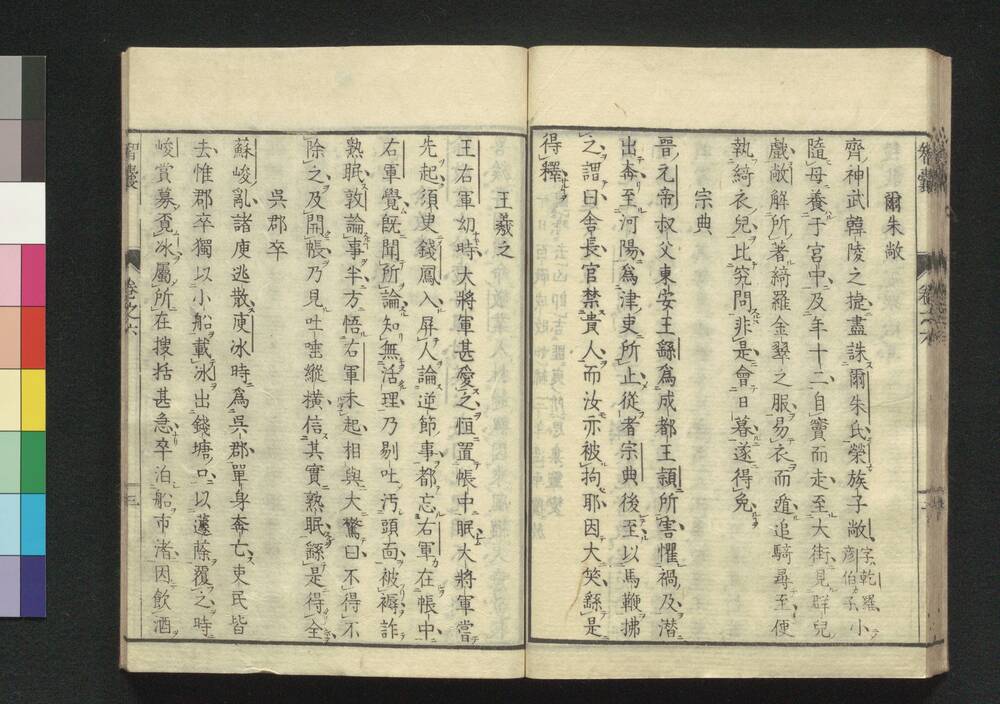 爾朱敞
齊神武韓陵之捷盡誅爾朱氏榮族子敞字乾羅彥伯子小
隨母養于宮中及年十二自竇而走至大街見群兒
戲敞解所著綺羅金翠之服易衣而遁追騎尋至便
執綺衣兒比究問非是會日暮遂得免
宗典
晉元帝叔父東安王繇爲成都王穎所害懼禍及潛
出奔至河陽爲津吏所止從者宗典後至以馬鞭拂
之謂曰舍長官禁貴人而汝亦被拘耶因大笑繇是
得釋
王羲之
王右軍幼時大將軍甚愛之恒置帳中眠大將軍嘗
先起須臾錢鳳入屏人論逆節事都忘右軍在帳中
右軍覺既聞所論知無活理乃剔吐汚頭面被褥詐
熟眠敦論事半方悟右軍未起相與大驚曰不得不
除之及開帳乃見吐唾縱橫信其實熟眠繇是得全
吳郡卒
蘇峻亂諸庾逃散庾冰時爲吳郡單身奔亡吏民皆
去惟郡卒獨以小船載冰出錢塘口以蘧蒢覆之時
峻賞募覔冰屬所在搜括甚急卒泊船市渚因飲酒
智囊
卷之六
三